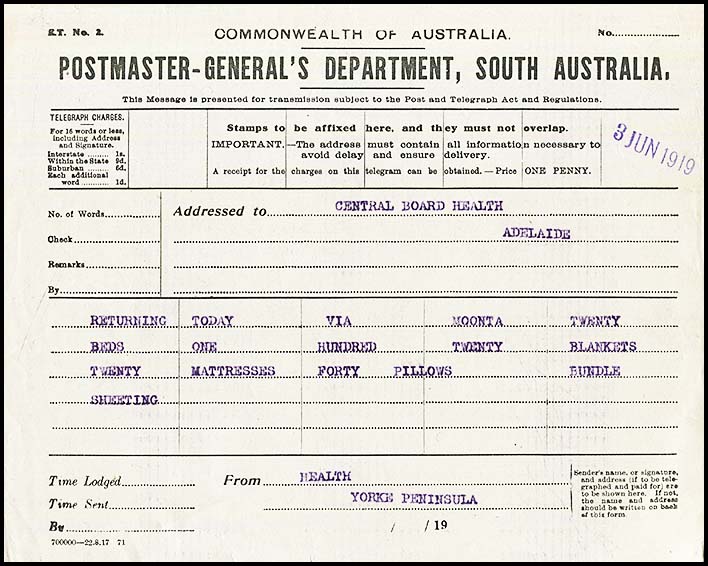 S.T. No. 2.
COMMONWEALTH OF AUSTRALIA.
No.
POSTMASTER-GENERAL'S DEPARTMENT, SOUTH AUSTRALIA.
This Message is presented for transmission subject to the Post and Telegraph Act and Regulations.
TELEGRAPH CHARGES.
For 16 words or less,
including Address
and Signature.
Interstate ......... 1s.
Within the State 9d.
Suburban ......... 6d.
Each additional
word ............ 1d.
Stamps to be affixed here, and they must not overlap.
IMPORTANT.—The address must contain all information necessary to
avoid delay and ensure delivery.
A receipt for the charges on this telegram can be obtained.—Price ONE PENNY.
3 JUN 1919
No. of Words
Check
Remarks
By
Addressed to CENTRAL BOARD HEALTH
ADELAIDE
RETURNING TODAY VIA MOONTA TWENTY
BEDS ONE HUNDRED TWENTY BLANKETS
TWENTY MATTRESSES FORTY PILLOWS BUNDLE
SHEETING
Time Lodged
Time Sent
By
From HEALTH
YORKE PENINSULA
/ /19
Sender's name, or signature,
and address (if to be tele-
graphed and paid for) are
to be shown here. If not,
the name and address
should be written on back
of this form.
700000—22.8.17 71